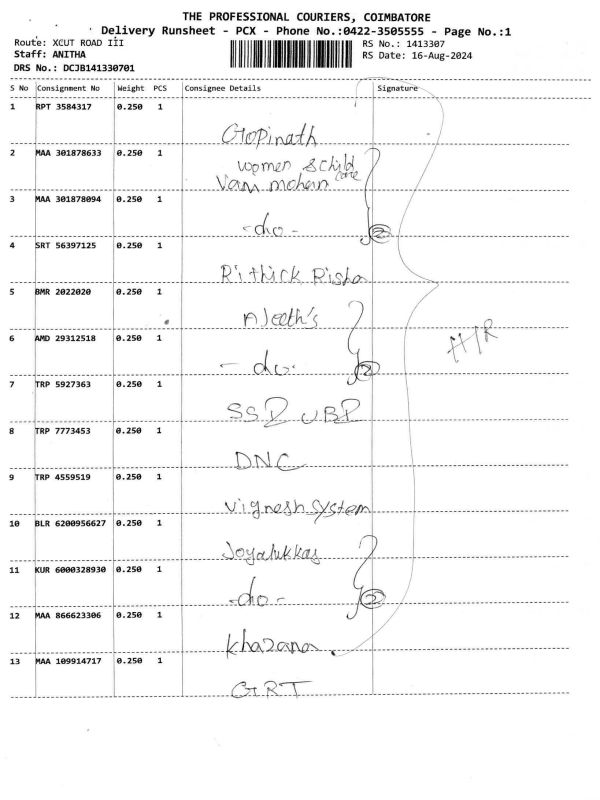 THE PROFESSIONAL COURIERS, COIMBATORE
Delivery Runsheet - PCX - Phone No.:0422-3505555 - Page No.:1
Route: XCUT ROAD III RS No.: 1413307
Staff: ANITHA RS Date: 16-Aug-2024
DRS No.: DCJB141330701
S No Consignment No Weight PCS Consignee Details Signature
1 RPT 3584317 0.250 1
Gopinath
2 MAA 301878633 0.250 1
women & child
care
Vam mohan
3 MAA 301878094 0.250 1
-do- 2
4 SRT 56397125 0.250 1
Rithick Risha
5 BMR 2022020 0.250 1
Ajeeth's
6 AMD 29312518 0.250 1
-do- 2
7 TRP 5927363 0.250 1
SSD UBI
8 TRP 7773453 0.250 1
DNC
9 TRP 4559519 0.250 1
Vignesh System
10 BLR 6200956627 0.250 1
Joyalukkas
11 KUR 6000328930 0.250 1
-do- 2
12 MAA 866623306 0.250 1
Khazana
13 MAA 109914717 0.250 1
GRT